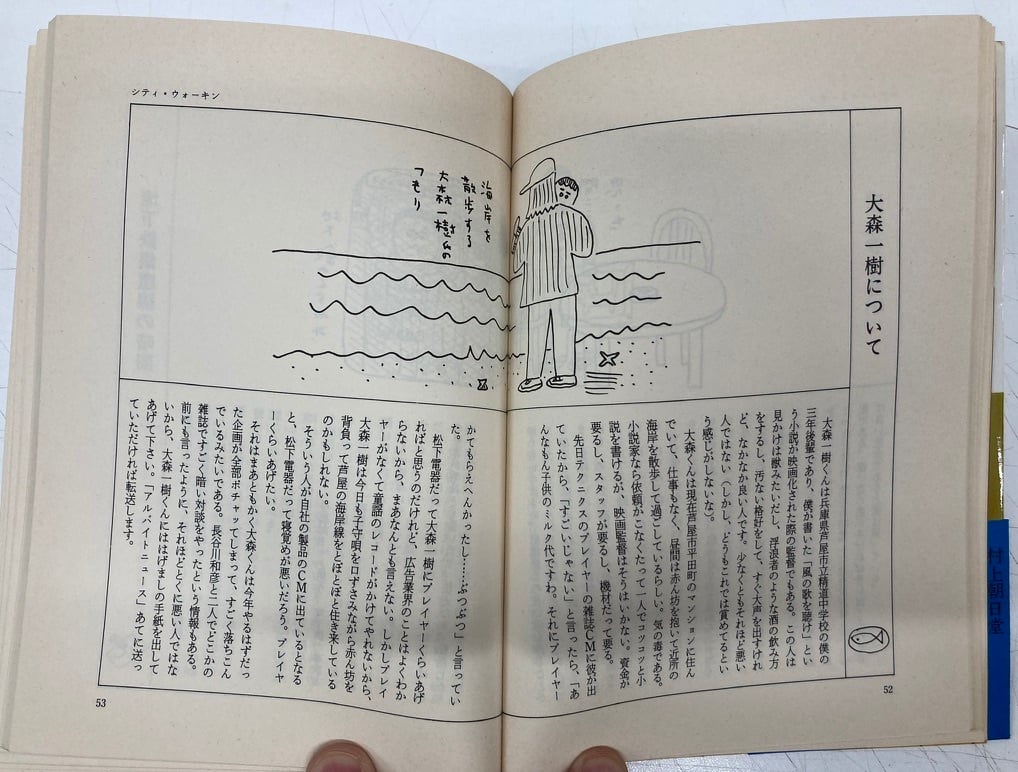 大森一樹について
大森一樹くんは兵庫県芦屋市立精道中学校の僕の
三年後輩であり、僕が書いた「風の歌を聴け」とい
う小説が映画化された際の監督でもある。この人は
見かけは獣みたいだし、浮浪者のような酒の飲み方
をするし、汚ない格好をして、すぐ大声を出すけれ
ど、なかなか良い人です。少なくともそれほど悪い
人ではない(しかし、どうもこれでは賞めてるとい
う感じがしないな)。
大森くんは現在芦屋市平田町のマンションに住ん
でいて、仕事もなく、昼間は赤ん坊を抱いて近所の
海岸を散歩して過ごしているらしい。気の毒である。
小説家なら依頼がこなくたって一人でコツコツと小
説を書けるが、映画監督はそうはいかない。資金が
要るし、スタッフが要るし、機材だって要る。
先日テクニクスのプレイヤーの雑誌CMに彼が出
ていたから、「すごいじゃない」と言ったら、「あ
んなもん子供のミルク代ですわ。それにプレイヤー
52
シティ・ウォーキン
海岸を
散歩する
大森一樹氏の
つもり
かてもらえへんかったし……ぶつぶつ」と言ってい
た。
松下電器だって大森一樹にプレイヤーくらいあげ
ればと思うのだけれど、広告業界のことはよくわか
らないから、まあなんとも言えない。しかしプレイ
ヤーがなくて童謡のレコードがかけてやれないから、
大森一樹は今日も子守唄を口ずさみながら赤ん坊を
背負って芦屋の海岸線をとぼとぼと往き来している
のかもしれない。
そういう人が自社の製品のCMに出ているとなる
と、松下電器だって寝覚めが悪いだろう。プレイヤ
ーくらいあげたい。
それはまあともかく大森くんは今年やるはずだっ
た企画が全部ポチャッてしまって、すごく落ちこん
でいるみたいである。長谷川和彦と二人でどこかの
雑誌ですごく暗い対談をやったという情報もある。
前にも言ったように、それほどとくに悪い人ではな
いから、大森一樹くんにははげましの手紙を出して
あげて下さい。「アルバイトニュース」あてに送っ
ていただければ転送します。
53
村上朝日堂